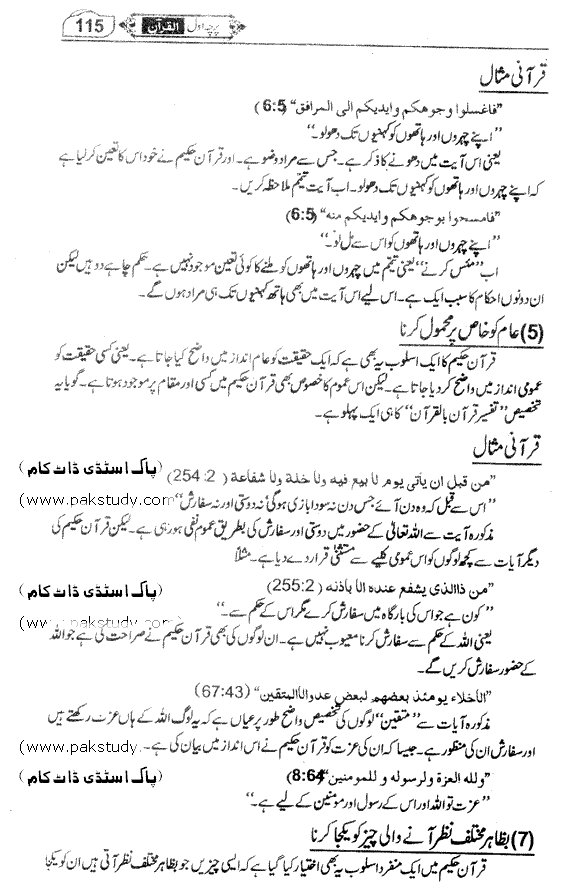 115 القرآن پرچہ اول
قرآنی مثال
”فاغسلوا وجوهكم وايديكم الى المرافق“ (6:5)
’’اپنے چہروں اور ہاتھوں کو کہنیوں تک دھولو۔‘‘
یعنی اس آیت میں دھونے کا ذکر ہے۔ جس سے مراد وضو ہے۔ اور قرآن حکیم نے خود اس کا تعین کر لیا ہے
کہ اپنے چہروں اور ہاتھوں کو کہنیوں تک دھولو۔ اب آیت تیمّم ملاحظہ کریں۔
”فامسحوا بوجوهكم وايديكم منه“ (6:5)
’’اپنے چہروں اور ہاتھوں کو اس سے مل لو۔‘‘
اب ’’مس کرنے‘‘ یعنی تیمّم میں چہروں اور ہاتھوں کو ملنے کا کوئی تعین موجود نہیں ہے۔ حکم چاہے دو ہیں لیکن
ان دونوں احکام کا سبب ایک ہے۔ اس لیے اس آیت میں بھی ہاتھ کہنیوں تک ہی مراد ہوں گے۔
(5) عام کو خاص پر محمول کرنا
قرآن حکیم کا ایک اسلوب یہ بھی ہے کہ ایک حقیقت کو عام انداز میں واضح کیا جاتا ہے۔ یعنی کسی حقیقت کو
عمومی انداز میں واضح کر دیا جاتا ہے۔ لیکن اس عموم کا خصوص بھی قرآن حکیم میں کسی اور مقام پر موجود ہوتا ہے۔ گویا یہ
تخصیص ’’تفسیر قرآن بالقرآن‘‘ کا ہی ایک پہلو ہے۔
قرآنی مثال
”من قبل ان ياتى يوم لا بيع فيه ولا خلة ولا شفاعة (254:2) (پاک اسٹڈی ڈاٹ کام)
’’اس سے قبل کہ وہ دن آئے جس دن نہ سودا بازی ہوگی نہ دوستی اور نہ سفارش‘‘ (www.pakstudy.com)
مذکورہ آیت سے اللہ تعالیٰ کے حضور میں دوستی اور سفارش کی بطریق عموم نفی ہو رہی ہے۔ لیکن قرآن حکیم کی
دیگر آیات سے کچھ لوگوں کو اس عمومی کلیے سے مستثنیٰ قرار دے دیا ہے۔ مثلاً
”من ذاالذى يشفع عنده الا باذنه (255:2) (پاک اسٹڈی ڈاٹ کام)
’’کون ہے جو اس کی بارگاہ میں سفارش کرے مگر اس کے حکم سے۔‘‘ (www.pakstudy.com)
یعنی اللہ کے حکم سے سفارش کرنا معیوب نہیں ہے۔ ان لوگوں کی بھی قرآن حکیم نے صراحت کی ہے جو اللہ
کے حضور سفارش کریں گے۔
”الأخلاء يومئذ بعضهم لبعض عدوالاالمتقين“ (67:43)
مذکورہ آیات سے ’’متقین‘‘ لوگوں کی تخصیص واضح طور پر عیاں ہے کہ یہ لوگ اللہ کے ہاں عزت رکھتے ہیں
اور سفارش ان کی منظور ہے۔ جیسا کہ ان کی عزت کو قرآن حکیم نے اس انداز میں بیان کی ہے۔ (www.pakstudy.
”ولله العزة ولرسوله وللمومنين“ (8:64) (پاک اسٹڈی ڈاٹ کام)
’’عزت تو اللہ اور اس کے رسول اور مومنین کے لیے ہے۔‘‘
(7) بظاہر مختلف نظر آنے والی چیز کو یکجا کرنا
قرآن حکیم میں ایک منفرد اسلوب یہ بھی اختیار کیا گیا ہے کہ ایسی چیزیں جو بظاہر مختلف نظر آتی ہیں ان کو یکجا